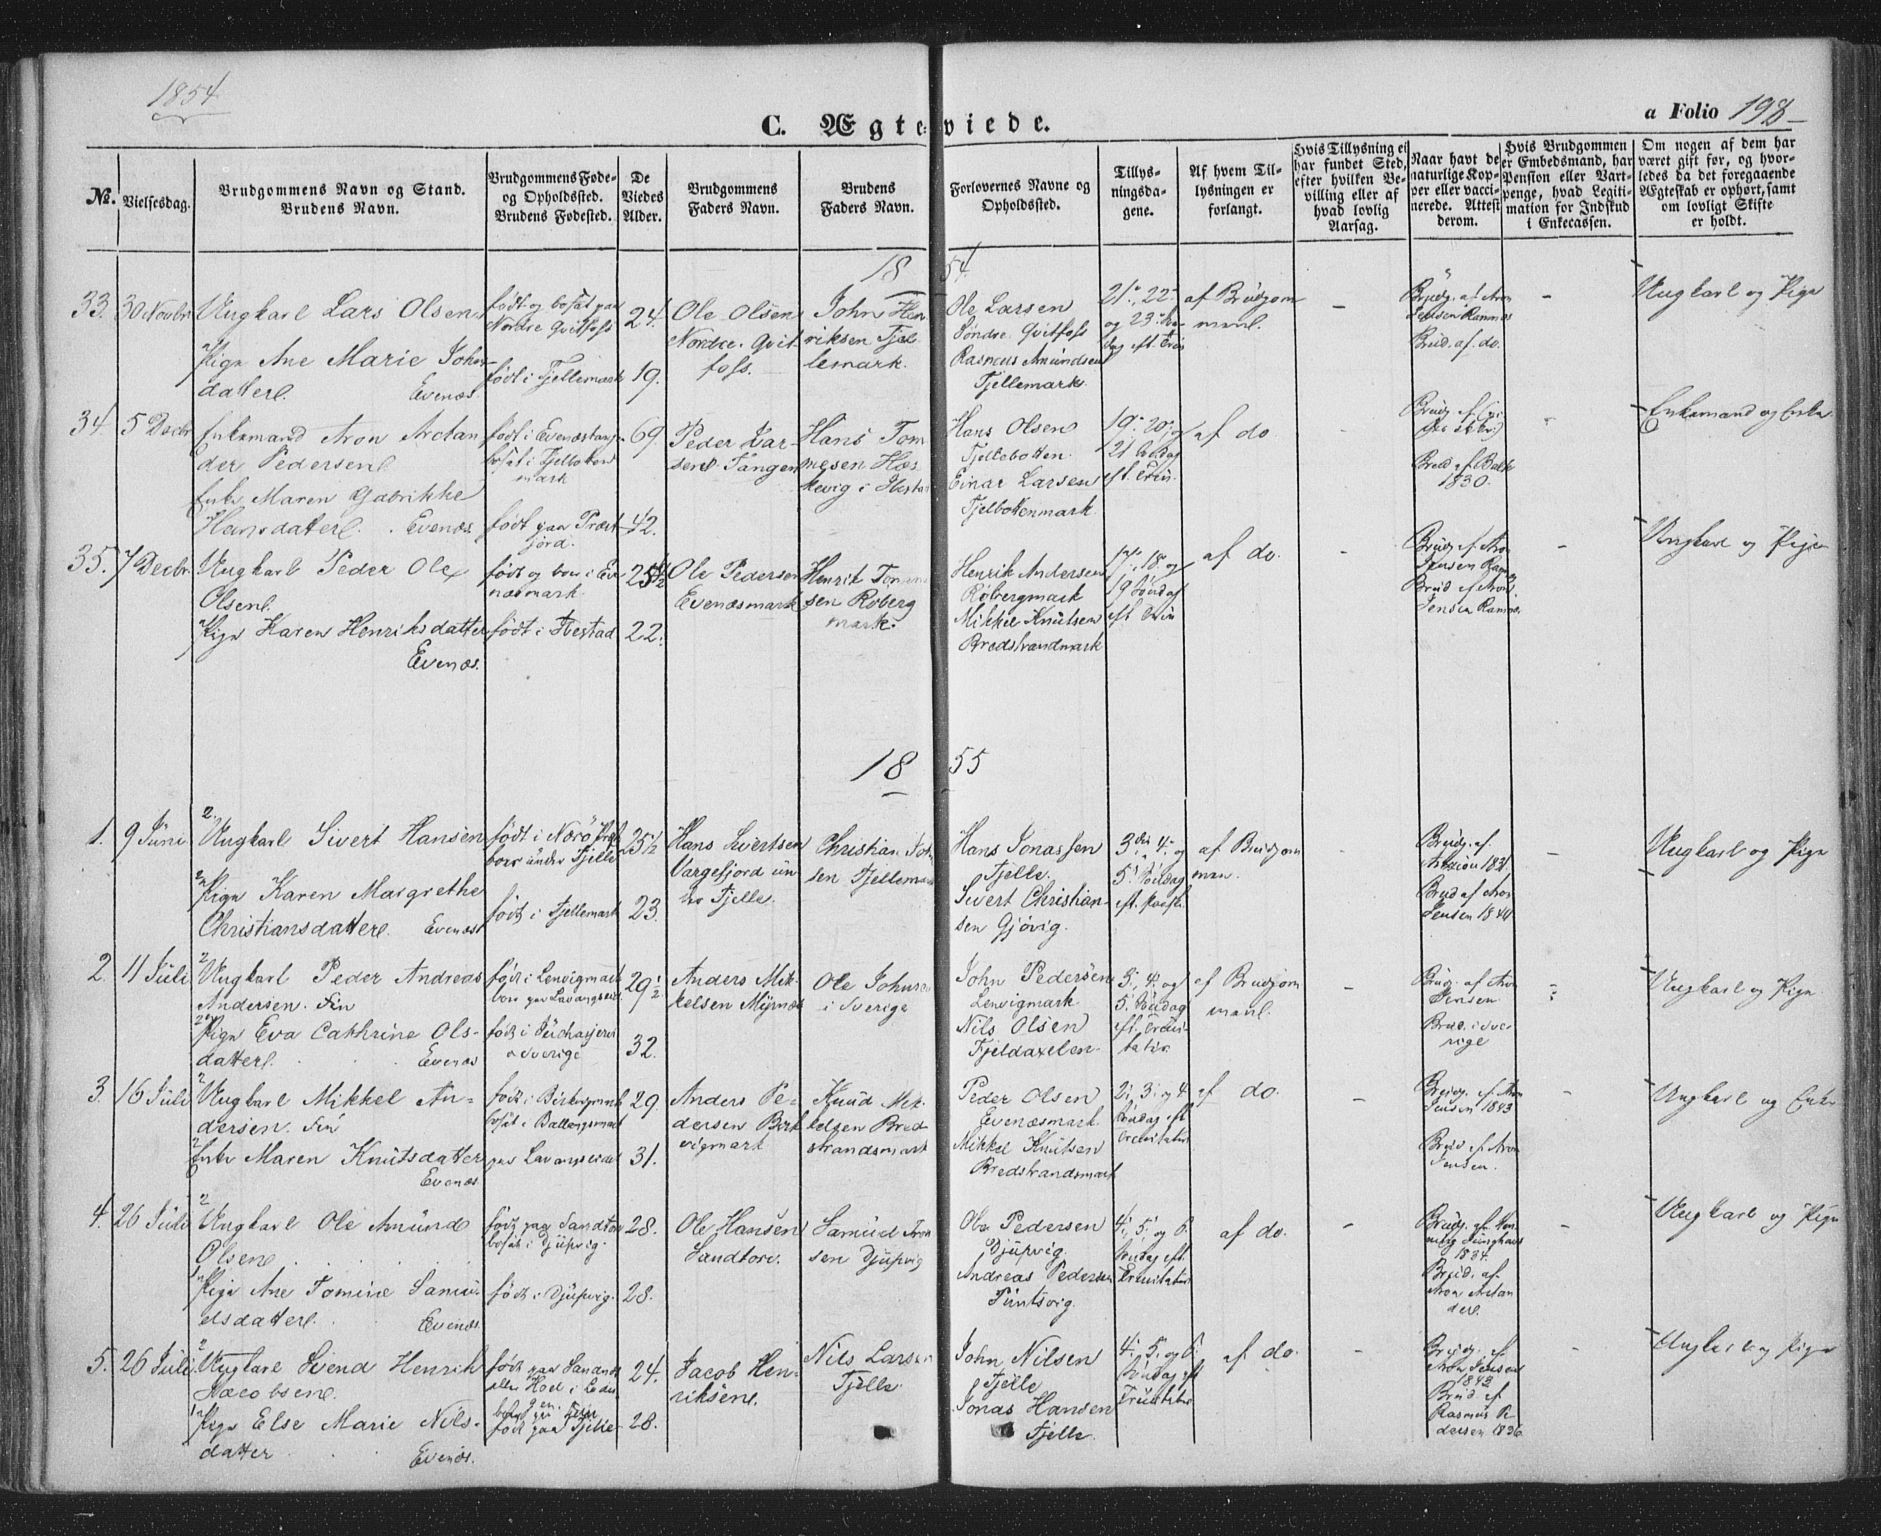 1854
C. Ægteviede.
a Folio 198
№.
Vielsesdag.
Brudgommens Navn og Stand.
Brudens Navn.
Brudgommens Føde-
og Opholdssted.
Brudens Fødested.
De
Viedes
Alder.
Brudgommens
Faders Navn.
Brudens
Faders Navn.
Forlovernes Navne og
Opholdssted.
Tillys-
ningsda-
gene.
Af hvem Til-
lysningen er
forlangt.
Hvis Tillysning ei
har fundet Sted,
efter hvilken Be-
villing eller af
hvad lovlig
Aarsag.
Naar havt de
naturlige Kop-
per eller vacci-
nerede. Attest
derom.
Hvis Brudgommen
er Embedsmand, har
Pension eller Vart-
penge, hvad Legiti-
mation for Indskud
i Enkecassen.
Om nogen af dem har
været gift før, og hvor-
ledes da det foregaaende
Ægteskab er ophørt, samt
om lovligt Skifte
er holdt.
1854
33.
30 Novbr
Ungkarl Lars Olsen
Pige Ane Marie Johns-
datter.
Evenæs.
født og bosat paa
Nordre Qvitfors
født i Fjellemark
24.
19.
Ole Olsen
Nordre Qvit-
fofs.
John Hen
riksen Fjel
lemark.
Ole Larsen
Søndre Qvitfofs
Rasmus Amundsen
Fjellemark.
21, 22
og 23
af Brudgom
manl.
-
Brudg. af Aron
Jensen Ramnæs
Brud. af do.
-
Ungkarl og Pige
34.
5 Decbr
Enkemand Aron Arctan
der Pedersen
Enke Maren Gabrikke
Hansdatter. Evenæs.
født i Evenæstangen
bosat i Fjelbotten
mark
født paa Præst
jord.
69.
42.
Peder Lar-
sen Tangen
Hans Tom
mesen Hæs
kevig i
Hans Olsen
Fjelbotten.
Einar Larsen
Fjelbottenmark
19, 20, og
21
af do
-
Brud af Balke
1830.
-
Enkemand og Enke
35.
7 Decbr.
Ungkarl Peder Ole
Olsen.
Pige Karen Henriksdatter
Evenæs.
født og boer i Eve
næsmark.
født i Hestad
25 1/2
22.
Ole Pedersen
Evenæsmark
Henrik Tom
sen Roberg
mark.
Henrik Andersen
Røbergmark
Mikkel Knutsen
Bredstrandmark
17, 18 og
19 Søndag
eft. Trin
af do.
-
Brudg. af Aron
Jensen Ramnæs
Brud af Aron
Jensen Ramnæs
-
Ungkarl og Pige
1855
1.
9 Juni
Ungkarl Sivert Hansen
Pige Karen Margrethe
Christiansdatter. Evenæs
født i Nærø Præst
boer under Fjelle
født i Fjellemark
25 1/2
23.
Hans Sivertsen
Vargefjord un
der Fjelle.
Christian Joh
sen Fjellemark
Hans Jonassen
Fjelle.
Sivert Christian-
sen Gjövig.
3die, 4. og
5. Söndag
eft. Paaske
af Brudgom
man.
-
Brudg. af
1831
Brud af Aron
Jensen 1844
-
Ungkarl og Pige
2.
11 Juli
Ungkarl Peder Andreas
Andersen. Fin
Pige Eva Cathrine Ols-
datter.
Evenæs
født i Lenvigmark
boer paa Lavangseidet
født i Juckasjervi
i Sverige
29 1/2
32.
Anders Mik-
kelsen Myrnæs
Ole Johnsen
i Sverige
John Pedersen
Lenvigmark
Nils Olsen
Fjeldaxelen
3, 4. og
5. Söndag
eft. Trini-
tatis
af Brudgom
manl.
-
Brudg. af Aron
Jensen
Brud. i Sve-
rige
-
Ungkarl og Pige
3.
16 Juli
Ungkarl Mikkel An-
dersen. Fin
Enke Maren Knutsdatter
Evenæs
født i Berkvigmark
bosat i Ballangsmark
paa Lavangseidet
29.
31.
Anders Pe-
dersen Berk
vigmark
Knud Mik-
kelsen Bred-
strandsmark
Peder Olsen
Evenæsmark.
Mikkel Knutsen
Bredstrandsmark
2, 3, og 4.
Söndag eft
Trinitatis
af do.
-
Brudg. af Aron
Jensen 1843
Brud af Aron
Jensen.
-
Ungkarl og Enke
4.
26 Juli
Ungkarl Ole Amund
Olsen
Pige Ane Tomine Samu-
elsdatter.
Evenæs.
født paa Sandtorv
bosat i Djupvig.
født i Djupvig.
28.
28.
Ole Hansen
Sandtorv.
Samuel Aron
sen Djupvig
Ole Pedersen
Djupvig.
Andreas Pedersen
4, 5, og 6.
Söndag eft.
Trinitatis
af do.
-
Brudg. af Hen
ning Junghans
1834.
Brud. af
Aron Arctan
der.
-
Ungkarl og Pige
5.
26 Juli
Ungkarl Svend Henrik
Jacobsen.
Pige Else Marie Nils-
datter
Evenæs.
født paa Sandnæs
eller Hoel i Lødin
gen.
født paa Fjelle
24.
28.
Jacob Hen-
riksen.
Nils Larsen
Fjelle
John Nilsen
Fjelle
Jonas Hansen
Fjelle
4. 5. og 6.
Söndag eft
Trinitatis
af do.
-
Brudg. af
Aron Jensen
1843
Brud af
Rasmus Pe
dersen 1836
-
Ungkarl og Pige